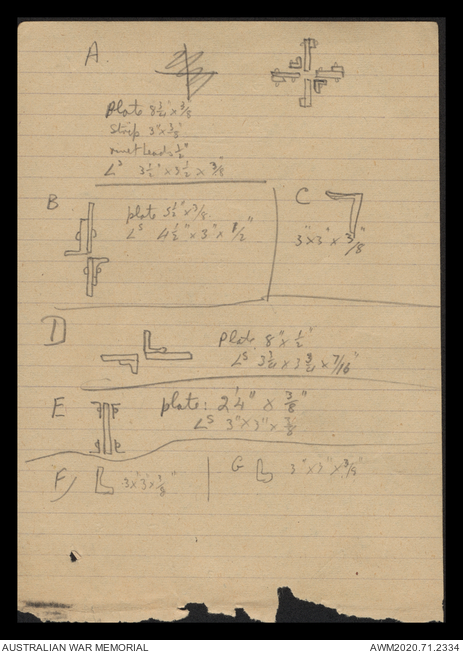 A
Plate 8 1/4" x 3/8
Strip 3" x 3/8"
rivet heads 1/2"
Ls 3 1/2" x 3 1/2 x 3/8"
B
plate 5 1/2" x 3/8
Ls 4 1/2" x 3" x 1/2"
C
3" x 3" x 3/8"
D
Plate 8" x 1/2"
Ls 3 3/4 x 3 3/4 x 7/16"
E
plate: 2'4" x 3/8"
Ls 3" x 3" x 3/8
F)
3 x 3 x 3/8"
G
3" x 3" x 3/8"
AUSTRALIAN WAR MEMORIAL
AWM2020.71.2334